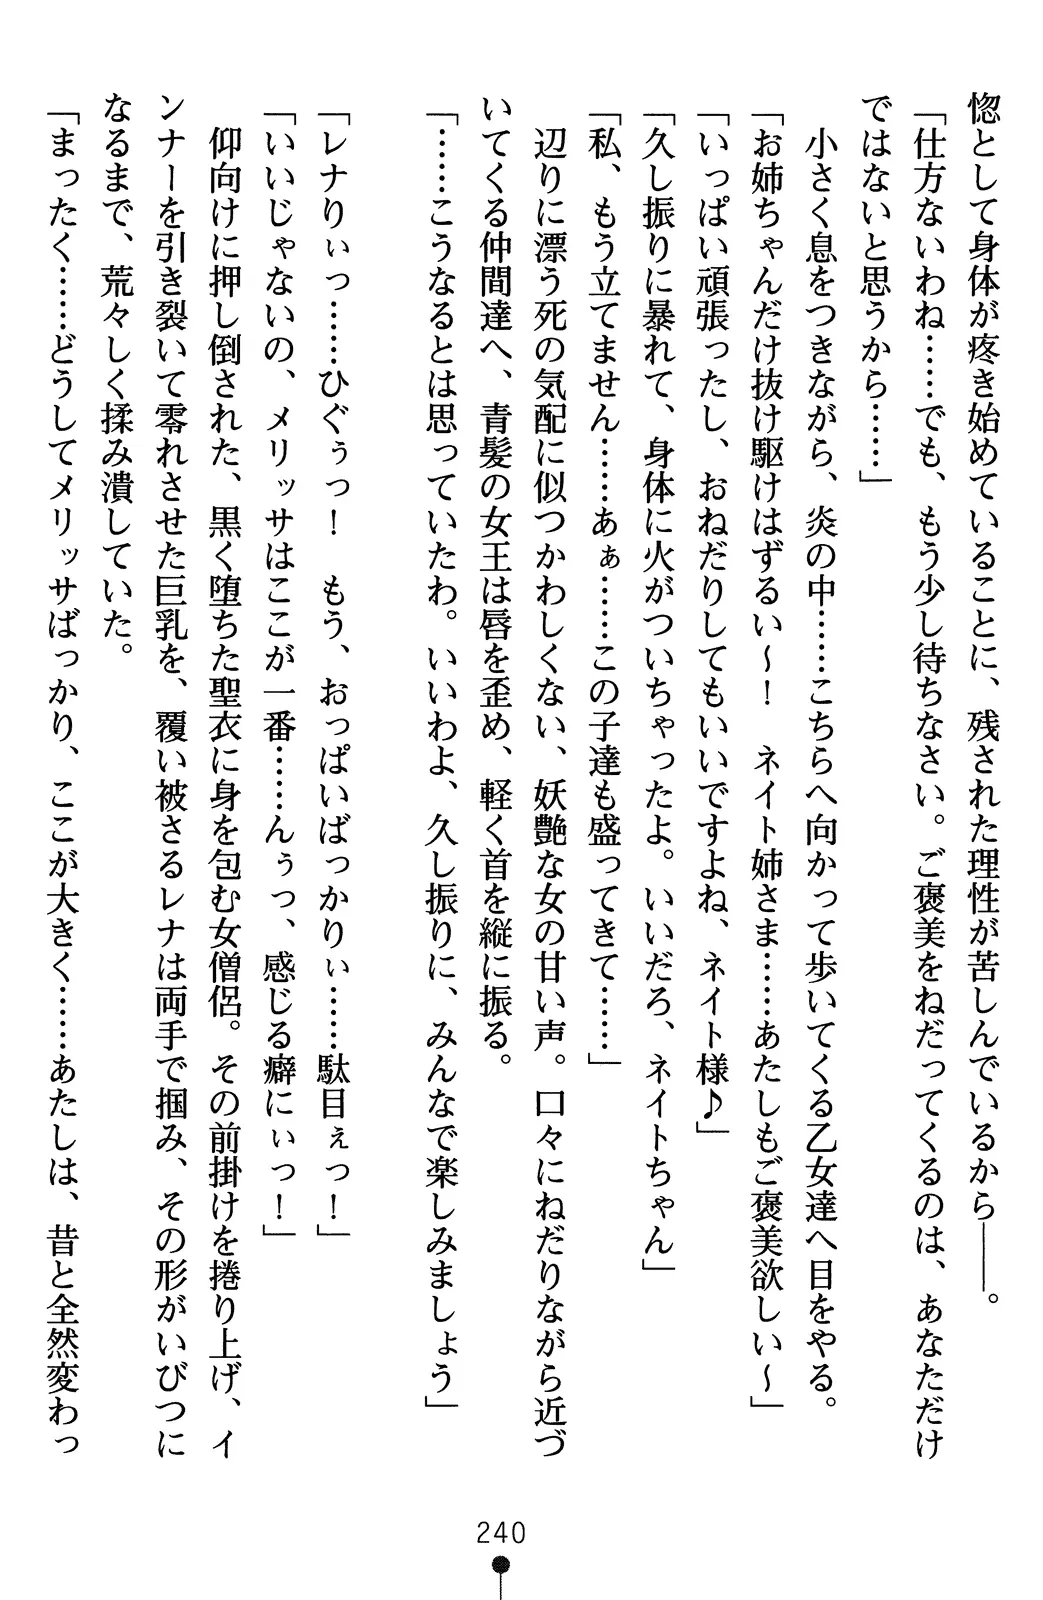 惚として身体が疼き始めていることに、残された理性が苦しんでいるから――。
「仕方ないわね……でも、もう少し待ちなさい。ご褒美をねだってくるのは、あなただけ
ではないと思うから……」
　小さく息をつきながら、炎の中……こちらへ向かって歩いてくる乙女達へ目をやる。
「お姉ちゃんだけ抜け駆けはずるい～！　ネイト姉さま……あたしもご褒美欲しい～」
「いっぱい頑張ったし、おねだりしてもいいですよね、ネイト様♪」
「久し振りに暴れて、身体に火がついちゃったよ。いいだろ、ネイトちゃん」
「私、もう立てません……あぁ……この子達も盛ってきて……」
　辺りに漂う死の気配に似つかわしくない、妖艶な女の甘い声。口々にねだりながら近づ
いてくる仲間達へ、青髪の女王は唇を歪め、軽く首を縦に振る。
「……こうなるとは思っていたわ。いいわよ、久し振りに、みんなで楽しみましょう」
「レナりぃっ……ひぐぅっ！　もう、おっぱいばっかりぃ……駄目ぇっ！」
「いいじゃないの、メリッサはここが一番……んぅっ、感じる癖にぃっ！」
　仰向けに押し倒された、黒く堕ちた聖衣に身を包む女僧侶。その前掛けを捲り上げ、イ
ンナーを引き裂いて零れさせた巨乳を、覆い被さるレナは両手で掴み、その形がいびつに
なるまで、荒々しく揉み潰していた。
「まったく……どうしてメリッサばっかり、ここが大きく……あたしは、昔と全然変わっ
240